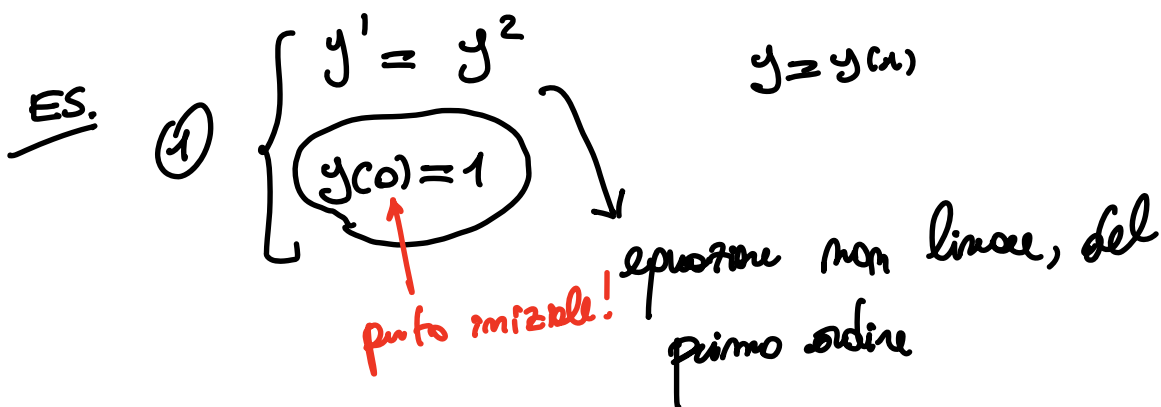 ES. ① { y' = y²
y(0) = 1
y = y(x)
punto iniziale!
equazione non lineare, del
primo ordine